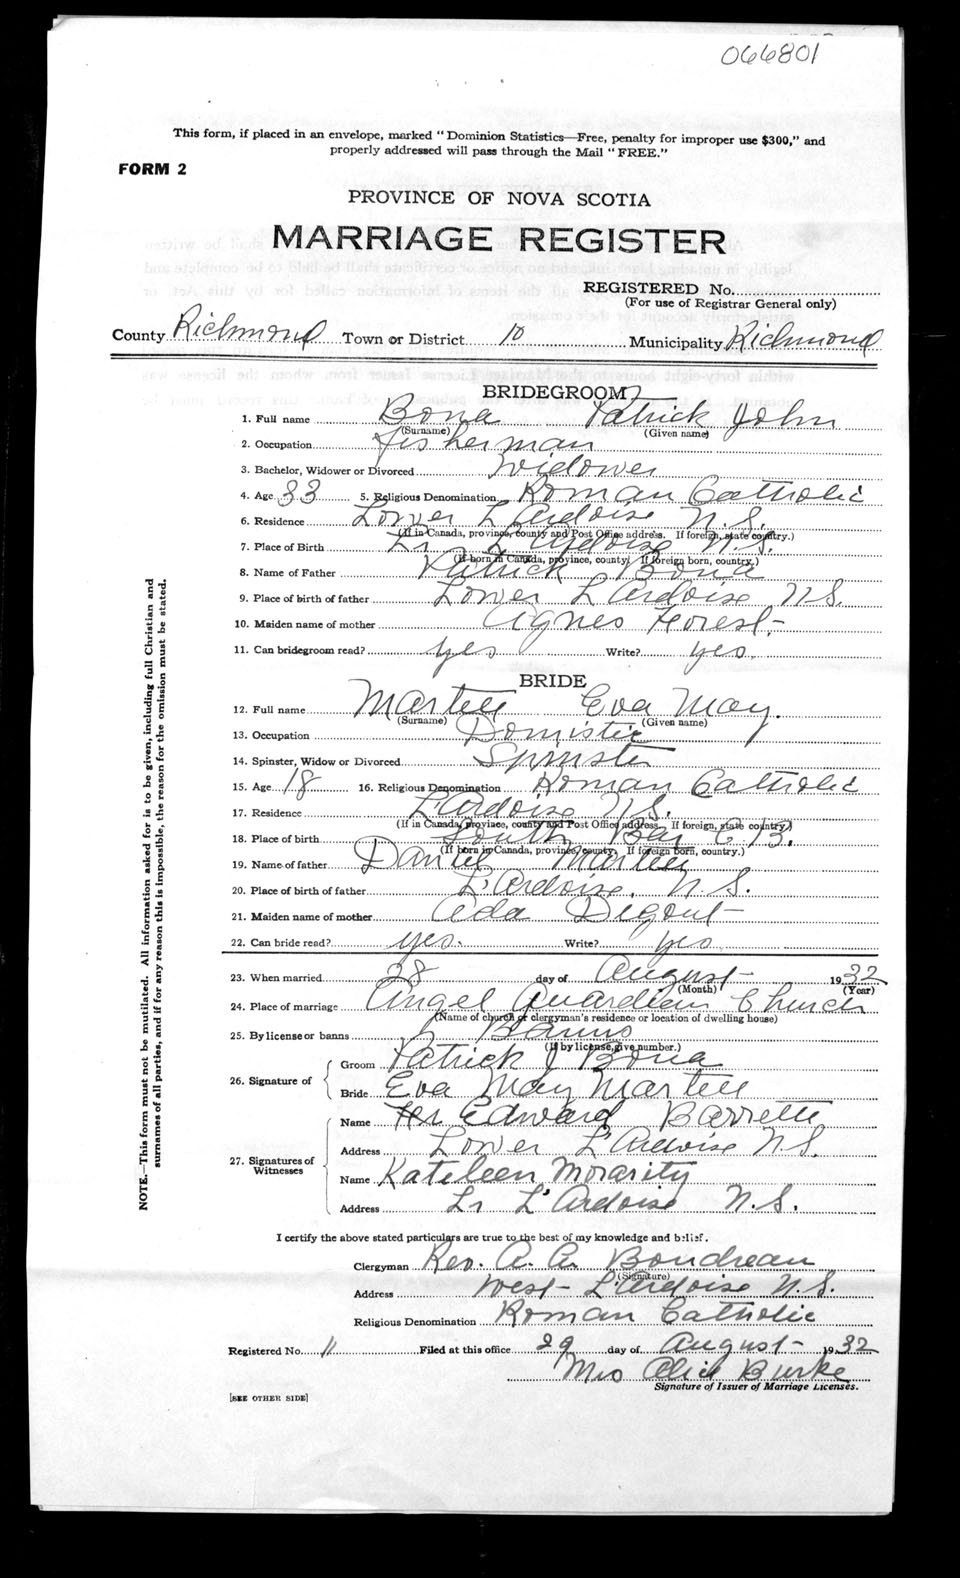 066801
This form, if placed in an envelope, marked "Dominion Statistics—Free, penalty for improper use $300," and
properly addressed will pass through the Mail "FREE."
FORM 2
PROVINCE OF NOVA SCOTIA
MARRIAGE REGISTER
REGISTERED No.
(For use of Registrar General only)
County Richmond Town or District 10 Municipality Richmond
BRIDEGROOM
1. Full name Bona Patrick John
(Surname) (Given name)
2. Occupation fisherman
3. Bachelor, Widower or Divorced Widower
4. Age 33 5. Religious Denomination Roman Catholic
6. Residence Lower L'Ardoise N.S.
(If in Canada, province, county and Post Office address. If foreign, state country.)
7. Place of Birth Lr L'Ardoise N.S.
(If born in Canada, province, county. If foreign born, country.)
8. Name of Father Patrick Bona
9. Place of birth of father Lower L'Ardoise N.S.
10. Maiden name of mother Agnes Forest
11. Can bridegroom read? yes Write? yes
BRIDE
12. Full name Martell Eva May.
(Surname) (Given name)
13. Occupation Domistic
14. Spinster, Widow or Divorced Spinster
15. Age 18 16. Religious Denomination Roman Catholic
17. Residence L'Ardoise N.S.
(If in Canada, province, county and Post Office address. If foreign, state country)
18. Place of birth South Bay C.B.
(If born in Canada, province, county. If foreign born, country.)
19. Name of father Daniel Martell
20. Place of birth of father L'Ardoise, N.S.
21. Maiden name of mother Ada Digout
22. Can bride read? yes. Write? yes
23. When married 28 day of August 1932
(Month) (Year)
24. Place of marriage Angel Guardian Church
(Name of church or clergyman's residence or location of dwelling house)
25. By license or banns Banns
(If by license, give number.)
26. Signature of
Groom Patrick J Bona
Bride Eva May Martell
27. Signatures of Witnesses
Name Edward Barrette
Address Lower L'Ardoise N.S.
Name Kateleen Morarity
Address Lr L'Ardoise N.S.
I certify the above stated particulars are true to the best of my knowledge and belief.
Clergyman Rev. A. A. Boudreau
(Signature)
Address West L'Ardoise N.S.
Religious Denomination Roman Catholic
Registered No. 11 Filed at this office 29 day of August 1932
Mrs Burke
Signature of Issuer of Marriage Licenses.
[SEE OTHER SIDE]
NOTE.—This form must not be mutilated. All information asked for is to be given, including full Christian and
surnames of all parties, and if for any reason this is impossible, the reason for the omission must be stated.